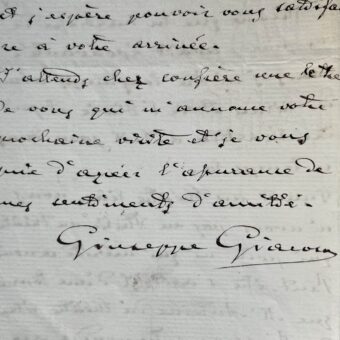 et j'espère pouvoir vous satisfai
re à votre arrivée.
J'attends cher confrère une lettre
de vous qui m'annonce votre
prochaine visite et je vous
prie d'agréer l'assurance de
mes sentiments d'amitié.
Giuseppe